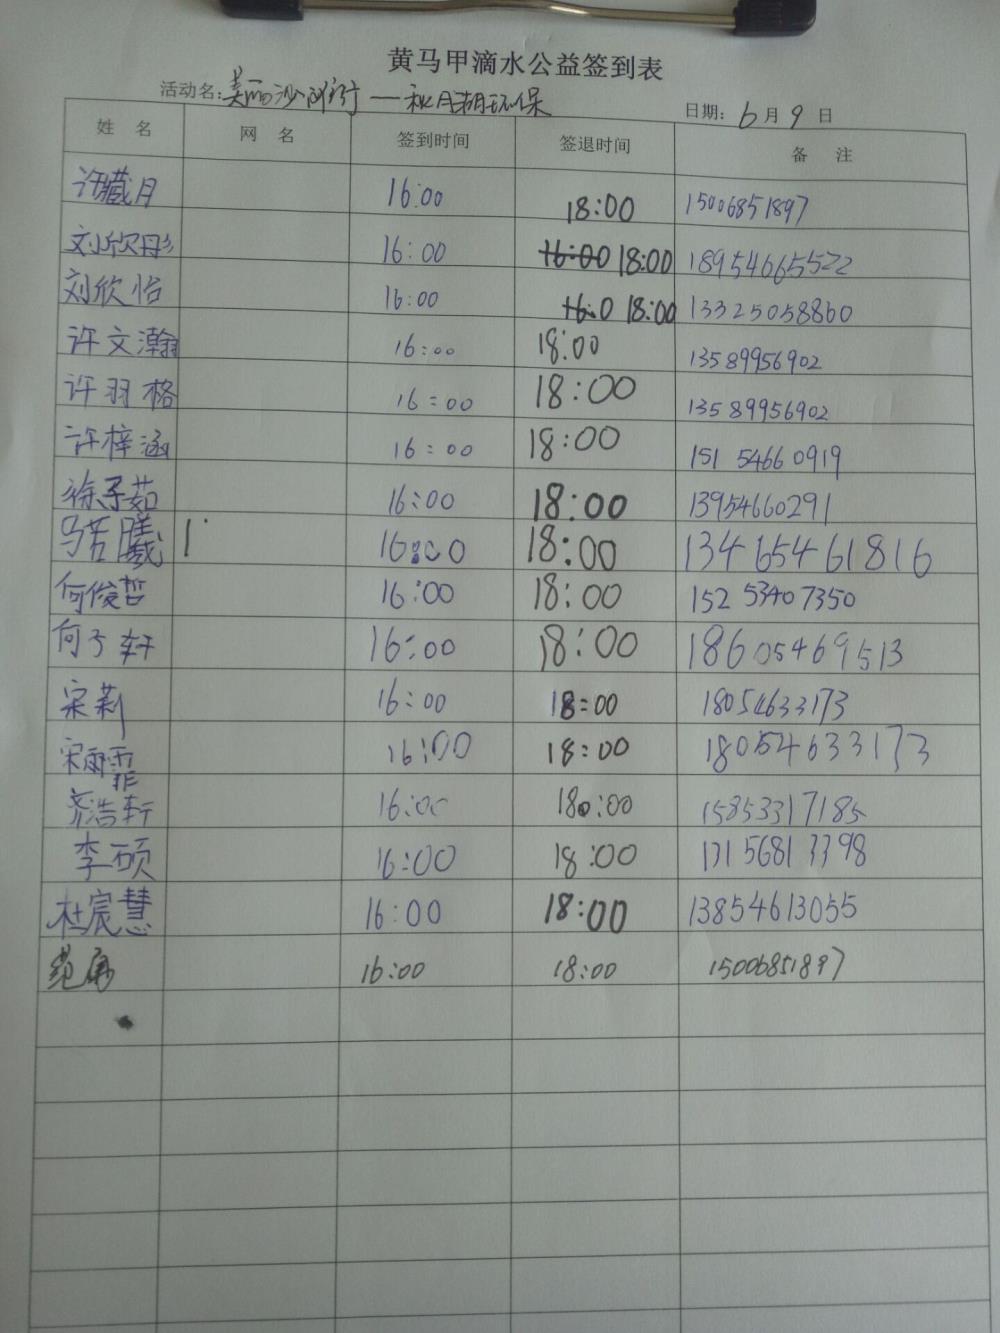 黄马甲滴水公益签到表
活动名: 美丽沙河行——秋月湖环保 日期: 6月9日
姓 名 网 名 签到时间 签退时间 备 注
许藏月 16:00 18:00 15006851897
刘欣彤 16:00 16:00 18:00 18954665522
刘欣怡 16:00 16:0 18:00 13325058860
许文瀚 16:00 18:00 13589956902
许羽格 16:00 18:00 13589956902
许梓涵 16:00 18:00 151 5466 0919
徐子茹 16:00 18:00 13954660291
马若曦 16:00 18:00 13465461816
何俊哲 16:00 18:00 152 5340 7350
何子轩 16:00 18:00 18605469513
宋莉 16:00 18:00 18054633173
宋雨霏 16:00 18:00 18054633173
齐浩轩 16:00 18:00 15853317185
李硕 16:00 18:00 13156813398
杜宸慧 16:00 18:00 13854613055
16:00 18:00 15006851897